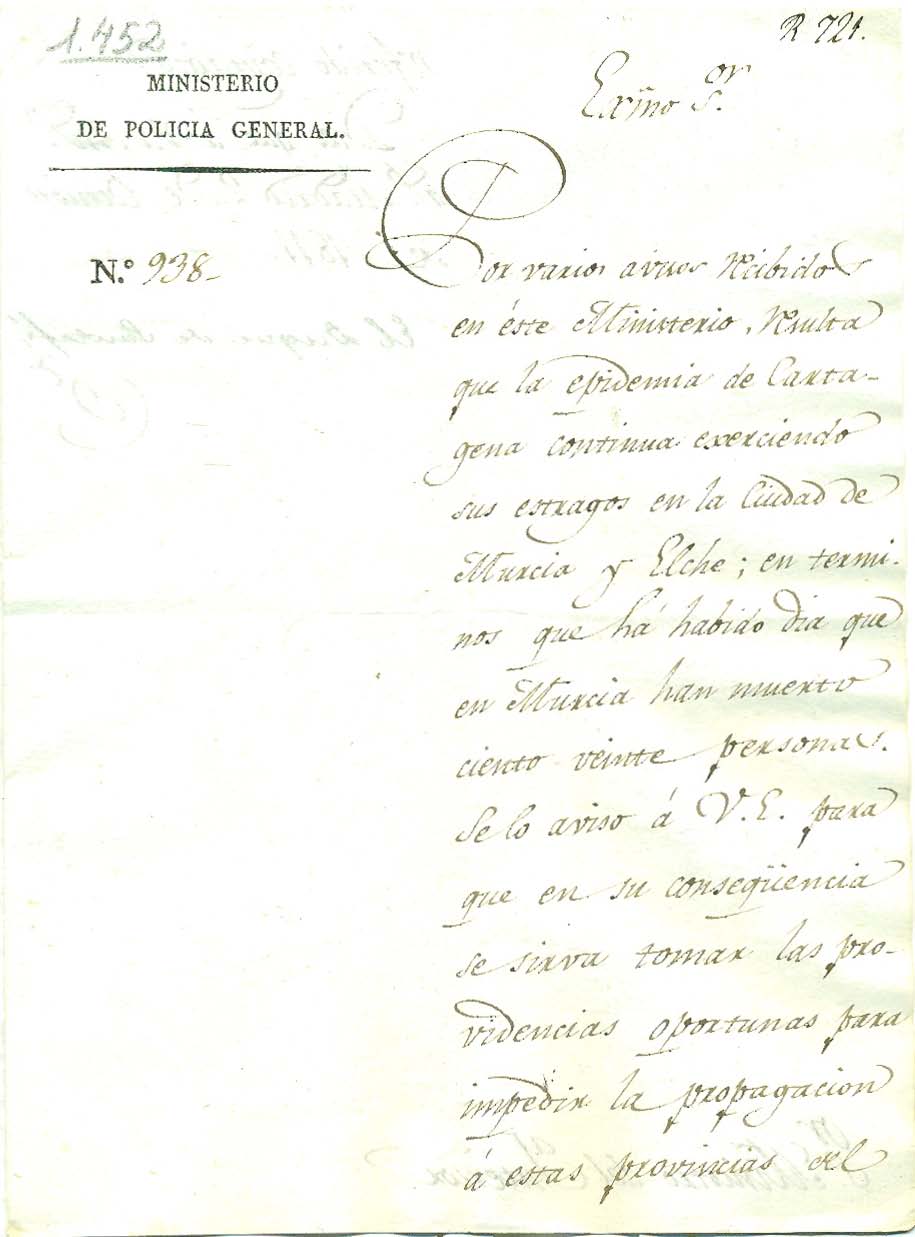 1.452
R 721.
MINISTERIO
DE POLICIA GENERAL.
Exmo Sor.
N.º 938
Por varios avisos recibidos
en éste Ministerio, resulta
que la epidemia de Carta-
gena continua exerciendo
sus estragos en la Ciudad de
Murcia y Elche; en termi-
nos que há habido dia que
en Murcia han muerto
ciento veinte personas.
Se lo aviso á V.E. para
que en su conseqüencia
se sirva tomar las pro-
videncias oportunas para
impedir la propagacion
á estas provincias del